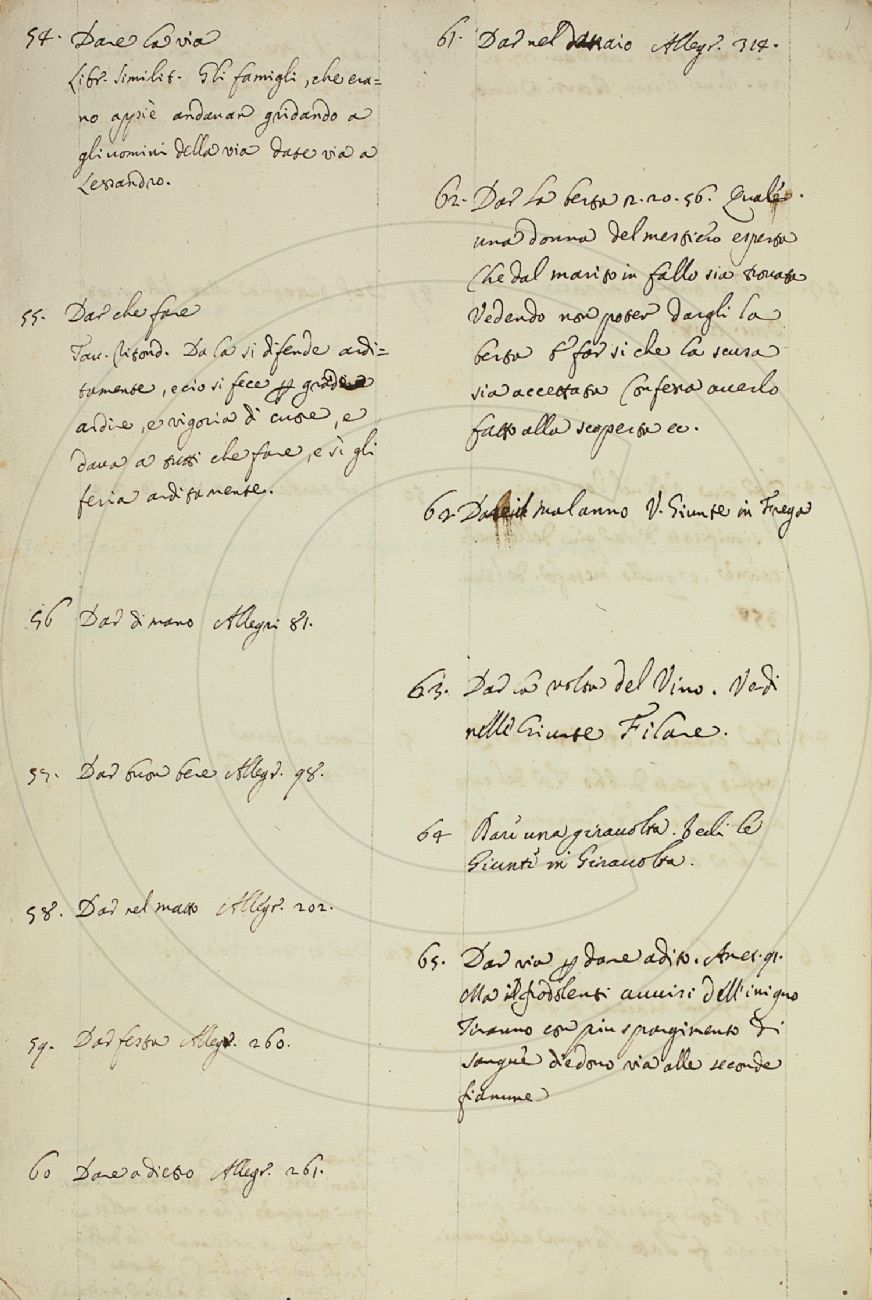 54. Dare la via
Libr. Similit. Gli famigli, che era=
no appiè andavan gridando a
gli uomini della via date via a
Lessandro.
55. Dar che fare
Tav. Ritond. Da la si difende ardi=
tamente, e cio si fece per grande
ardire, e vigoria di cuore, e
dava a tutti che fare, e sì gli
feria arditamente.
56 Dar di mano Allegri 81.
57. Dar buon bere Allegr. 98.
58. Dar nel matto Allegr. 202.
59. Dar festa Allegr. 260.
60 Dare adietro Allegr. 261.
61. Dar nel Allegr. 314.
62. Dar la berta 2. 20. 56. Qual è
una donna del mestiero esperta
Che dal marito in fallo sia trovata
Vedendo non poter dargli la
berta far si che la scusa
sia accettata Confessa averlo
fatto alla scoperta ec.
62 Dare il malanno V. Giunte in Frega
63. Dar la volta del Vino. Vedi
nelle Giunte Filare.
64 Dare una giravolta. Vedi le
Giunte in Giravolta.
65. Dar via per dare adito. Amet. 91.
Ma i frodolenti avvisi dell'iniquo
Tiranno con piu spargimento di
sangue diedono via alle seconde
fiamme